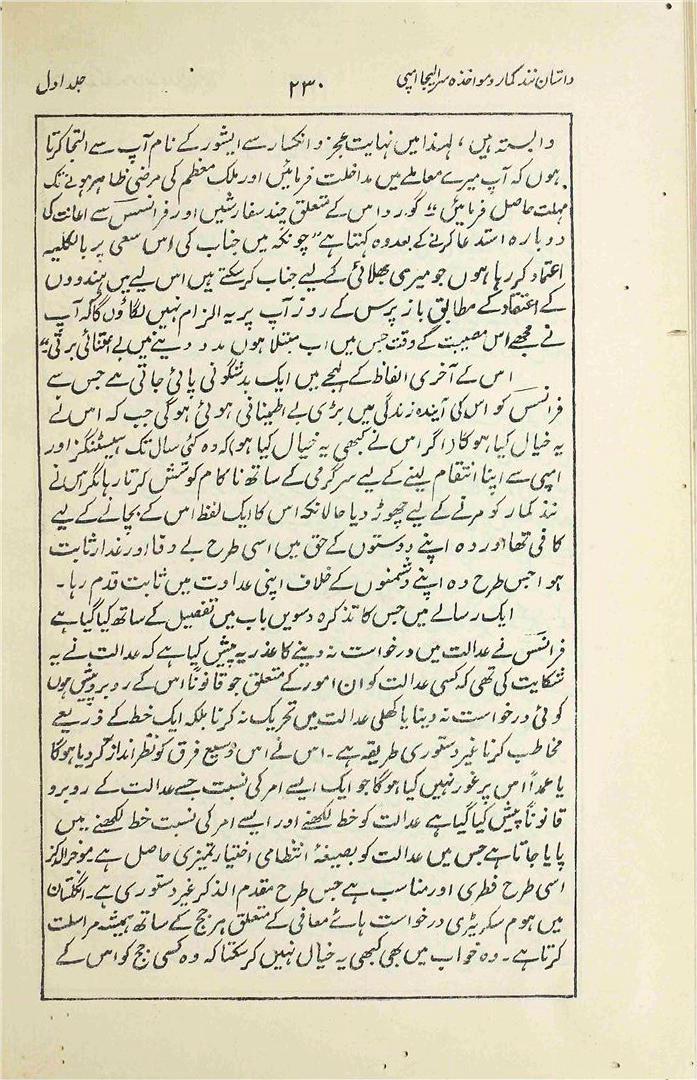 داستان نند کمار و مواخذہ سر الیجا امپی
۲۳۰
جلد اول
وابستہ ہیں، لہٰذا میں نہایت عجز و انکسار سے ایشور کے نام آپ سے التجا کرتا
ہوں کہ آپ میرے معاملے میں مداخلت فرمائیں اور ملک معظم کی مرضی ظاہر ہونے تک
مہلت حاصل فرمائیں" گورداس کے متعلق چند سفارشیں اور فرانسس سے اعانت کی
دوبارہ استدعا کرنے کے بعد وہ کہتا ہے "چونکہ میں جناب کی اس سعی پر بالکلیہ
اعتماد کر رہا ہوں جو میری بھلائی کے لیے جناب کر سکتے ہیں اس لیے میں ہندووں
کے اعتقاد کے مطابق باز پرس کے روز آپ پر یہ الزام نہیں لگاؤں گا کہ آپ
نے مجھے اس مصیبت کے وقت جس میں اب مبتلا ہوں مدد دینے میں بے اعتنائی برتی"
اس کے آخری الفاظ کے لہجے میں ایک بدشگونی پائی جاتی ہے جس سے
فرانسس کو اس کی آیندہ زندگی میں بڑی بے اطمینانی ہوئی ہوگی جب کہ اس نے
یہ خیال کیا ہوگا (اگر اس نے کبھی یہ خیال کیا ہو) کہ وہ کئی سال تک ہیسٹنگز اور
امپی سے اپنا انتقام لینے کے لیے سرگرمی کے ساتھ ناکام کوشش کرتا رہا مگر اس نے
نند کمار کو مرنے کے لیے چھوڑ دیا حالانکہ اس کا ایک لفظ اس کے بچانے کے لیے
کافی تھا اور وہ اپنے دوستوں کے حق میں اسی طرح بے وفا اور غدار ثابت
ہوا جس طرح وہ اپنے دشمنوں کے خلاف اپنی عداوت میں ثابت قدم رہا۔
ایک رسالے میں جس کا تذکرہ دسویں باب میں تفصیل کے ساتھ کیا گیا ہے
فرانسس نے عدالت میں درخواست نہ دینے کا عذر یہ پیش کیا ہے کہ عدالت نے یہ
شکایت کی تھی کہ کسی عدالت کو ان امور کے متعلق جو قانوناً اس کے روبرو پیش ہوں
کوئی درخواست نہ دینا یا کھلی عدالت میں تحریک نہ کرنا بلکہ ایک خط کے ذریعے
مخاطب کرنا غیر دستوری طریقہ ہے۔ اس نے اس وسیع فرق کو نظر انداز کر دیا ہوگا
یا عمداً اس پر غور نہیں کیا ہوگا جو ایک ایسے امر کی نسبت جسے عدالت کے روبرو
قانوناً پیش کیا گیا ہے عدالت کو خط لکھنے اور ایسے امر کی نسبت خط لکھنے میں
پایا جاتا ہے جس میں عدالت کو بصیغۂ انتظامی اختیار تمیزی حاصل ہے موخر الذکر
اسی طرح فطری اور مناسب ہے جس طرح مقدم الذکر غیر دستوری ہے۔ انگلستان
میں ہوم سکریٹری درخواست ہائے معافی کے متعلق ہر جج کے ساتھ ہمیشہ مراسلت
کرتا ہے۔ وہ خواب میں بھی کبھی یہ خیال نہیں کر سکتا کہ وہ کسی جج کو اس کے